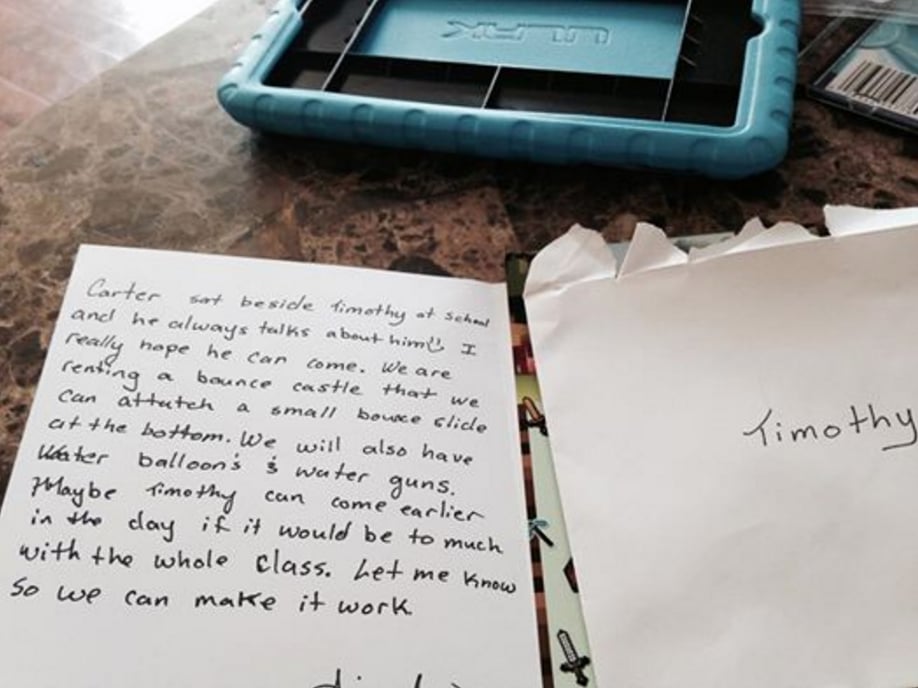 Carter sat beside Timothy at school
and he always talks about him☺ I
really hope he can come. We are
renting a bounce castle that we
can attutch a small bounce slide
at the bottom. We will also have
Water balloon's & water guns.
Maybe Timothy can come earlier
in the day if it would be to much
with the whole class. Let me know
so we can make it work
Timothy